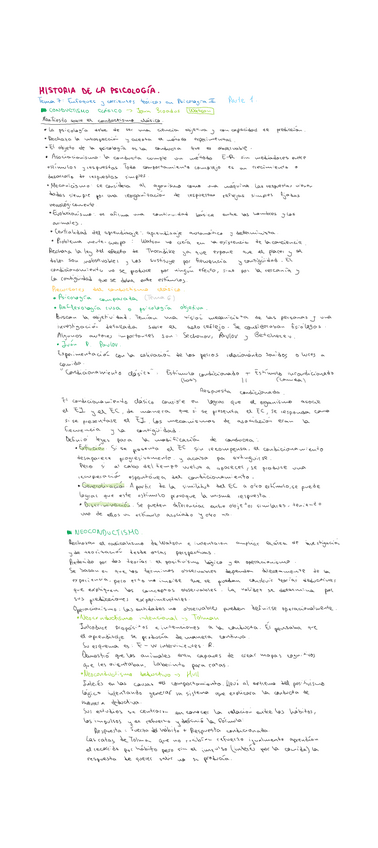 HISTORIA DE LA PSICOLOGÍA.
Tema 7. Enfoques y corrientes teóricas en Psicología II Parte 1
CONDUCTISMO CLÁSICO → John Broadus Watson
Manifiesto sobre el conductismo clásico.
• La psicología debe de ser una ciencia objetiva y con capacidad de predicción.
• Rechazo la introspección y acepta el método experimental.
• El objeto de la psicología es la conducta que es observable.
• Asociacionismo: la conducta cumple un método E-R sin mediadores entre
estímulos y respuestas. Todo comportamiento complejo es un crecimiento o
desarrollo de respuestas simples
• Mecanicismo: se considera al organismo como una máquina. Las respuestas
dadas siempre por una reorganización de respuestas reflejas simples fijadas
neurológicamente
• Evolucionismo: se afirma una continuidad básica entre los hombres y los
animales.
• Centralidad del aprendizaje: aprendizaje automático y determinista.
• Problema mente-cuerpo: Watson no creía en la existencia de la consciencia
Rechaza la ley del efecto de Thorndike ya que supone que el placer y el
dolor son inobservables y los sustituye por frecuencia y contigüidad. El
condicionamiento no se produce por ningún efecto, sino por la cercanía y
la contigüidad que se daba ante estímulos.
Precursores del conductismo clásico
• Psicología comparada (Tema 5)
• Reflexología rusa o psicología objetiva
Buscan la objetividad. Tenían una visión mecanicista de las personas y una
investigación detallada sobre el acto reflejo. Se consideraban fisiólogos.
Algunos autores importantes son: Sechenov, Pavlov y Betcherev.
• Iván P. Pavlov
Experimentación con la salivación de los perros relacionando sonidos o luces a
comida
"Condicionamiento clásico": Estímulo condicionado + Estímulo incondicionado
(luz) (comida)
Respuesta condicionada
El condicionamiento clásico consiste en lograr que el organismo asocie
el EI y el EC, de manera que si se presenta el EC, se responda como
si se presentase el EI. Los mecanismos de asociación eran la
frecuencia y la contigüidad.
Definió leyes para la modificación de conducta:
• Extinción: Si se presenta el EC sin recompensa, el condicionamiento
desaparece progresivamente y acaba por extinguirse.
Pero si al cabo del tiempo vuelve a aparecer, se produce una
recuperación espontánea del condicionamiento.
• Generalización: A partir de la similitud del EC a otro estímulo, se puede
lograr que este estímulo provoque la misma respuesta
• Discriminación: Se pueden diferenciar entre objetos similares, teniendo
uno de ellos un estímulo asociado y otro no
NEOCONDUCTISMO
Rechazan el radicalismo de Watson e intentaron ampliar las áreas de investigación
y de teorización desde otras perspectivas.
Rodeado por dos teorías: el positivismo lógico y el operacionismo
Se basan en que los términos observacionales dependen directamente de la
experiencia, pero esto no impide que se puedan construir teorías deductivas
que expliquen los conceptos observables. La validez se determina por
sus predicciones experimentales.
Operacionismo: las entidades no observables pueden definirse operacionalmente.
• Neoconductismo intencional → Tolman
Introduce propósitos e intenciones a la conducta. Él pensaba que
el aprendizaje se producía de manera continua.
Su esquema es: E - V. intervinientes - R.
Demostró que los animales eran capaces de crear mapas cognitivos
que les orientaban. Laberinto para ratas.
• Neoconductismo deductivo → Hull
Interés en las causas del comportamiento. Llevó al extremo del positivismo
lógico intentando generar un sistema que explicara la conducta de
manera deductiva.
Sus estudios se centraron en conocer la relación entre los hábitos,
los impulsos y el refuerzo y definió la fórmula
Respuesta: Fuerza del hábito + Respuesta condicionada
Las ratas de Tolman que no recibían refuerzo igualmente aprendían
el recorrido por hábito pero sin el impulso (interés por la comida) la
respuesta de querer salir no se producía.